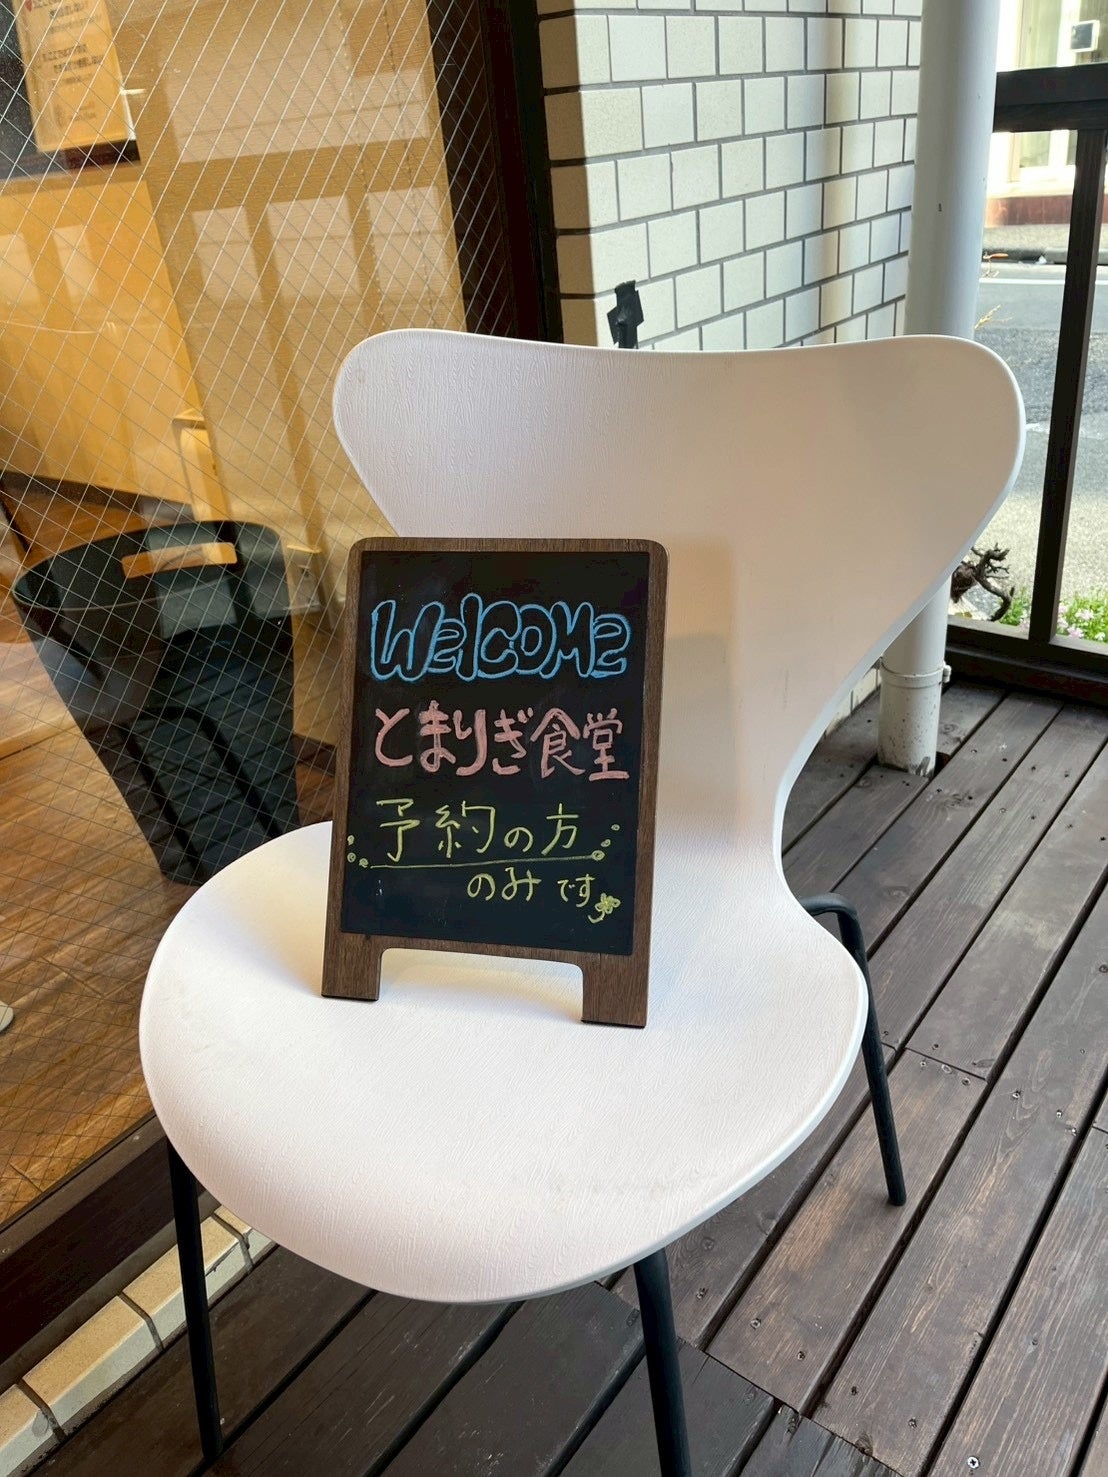 WelCOMe
とまりぎ食堂
予約の方
のみです